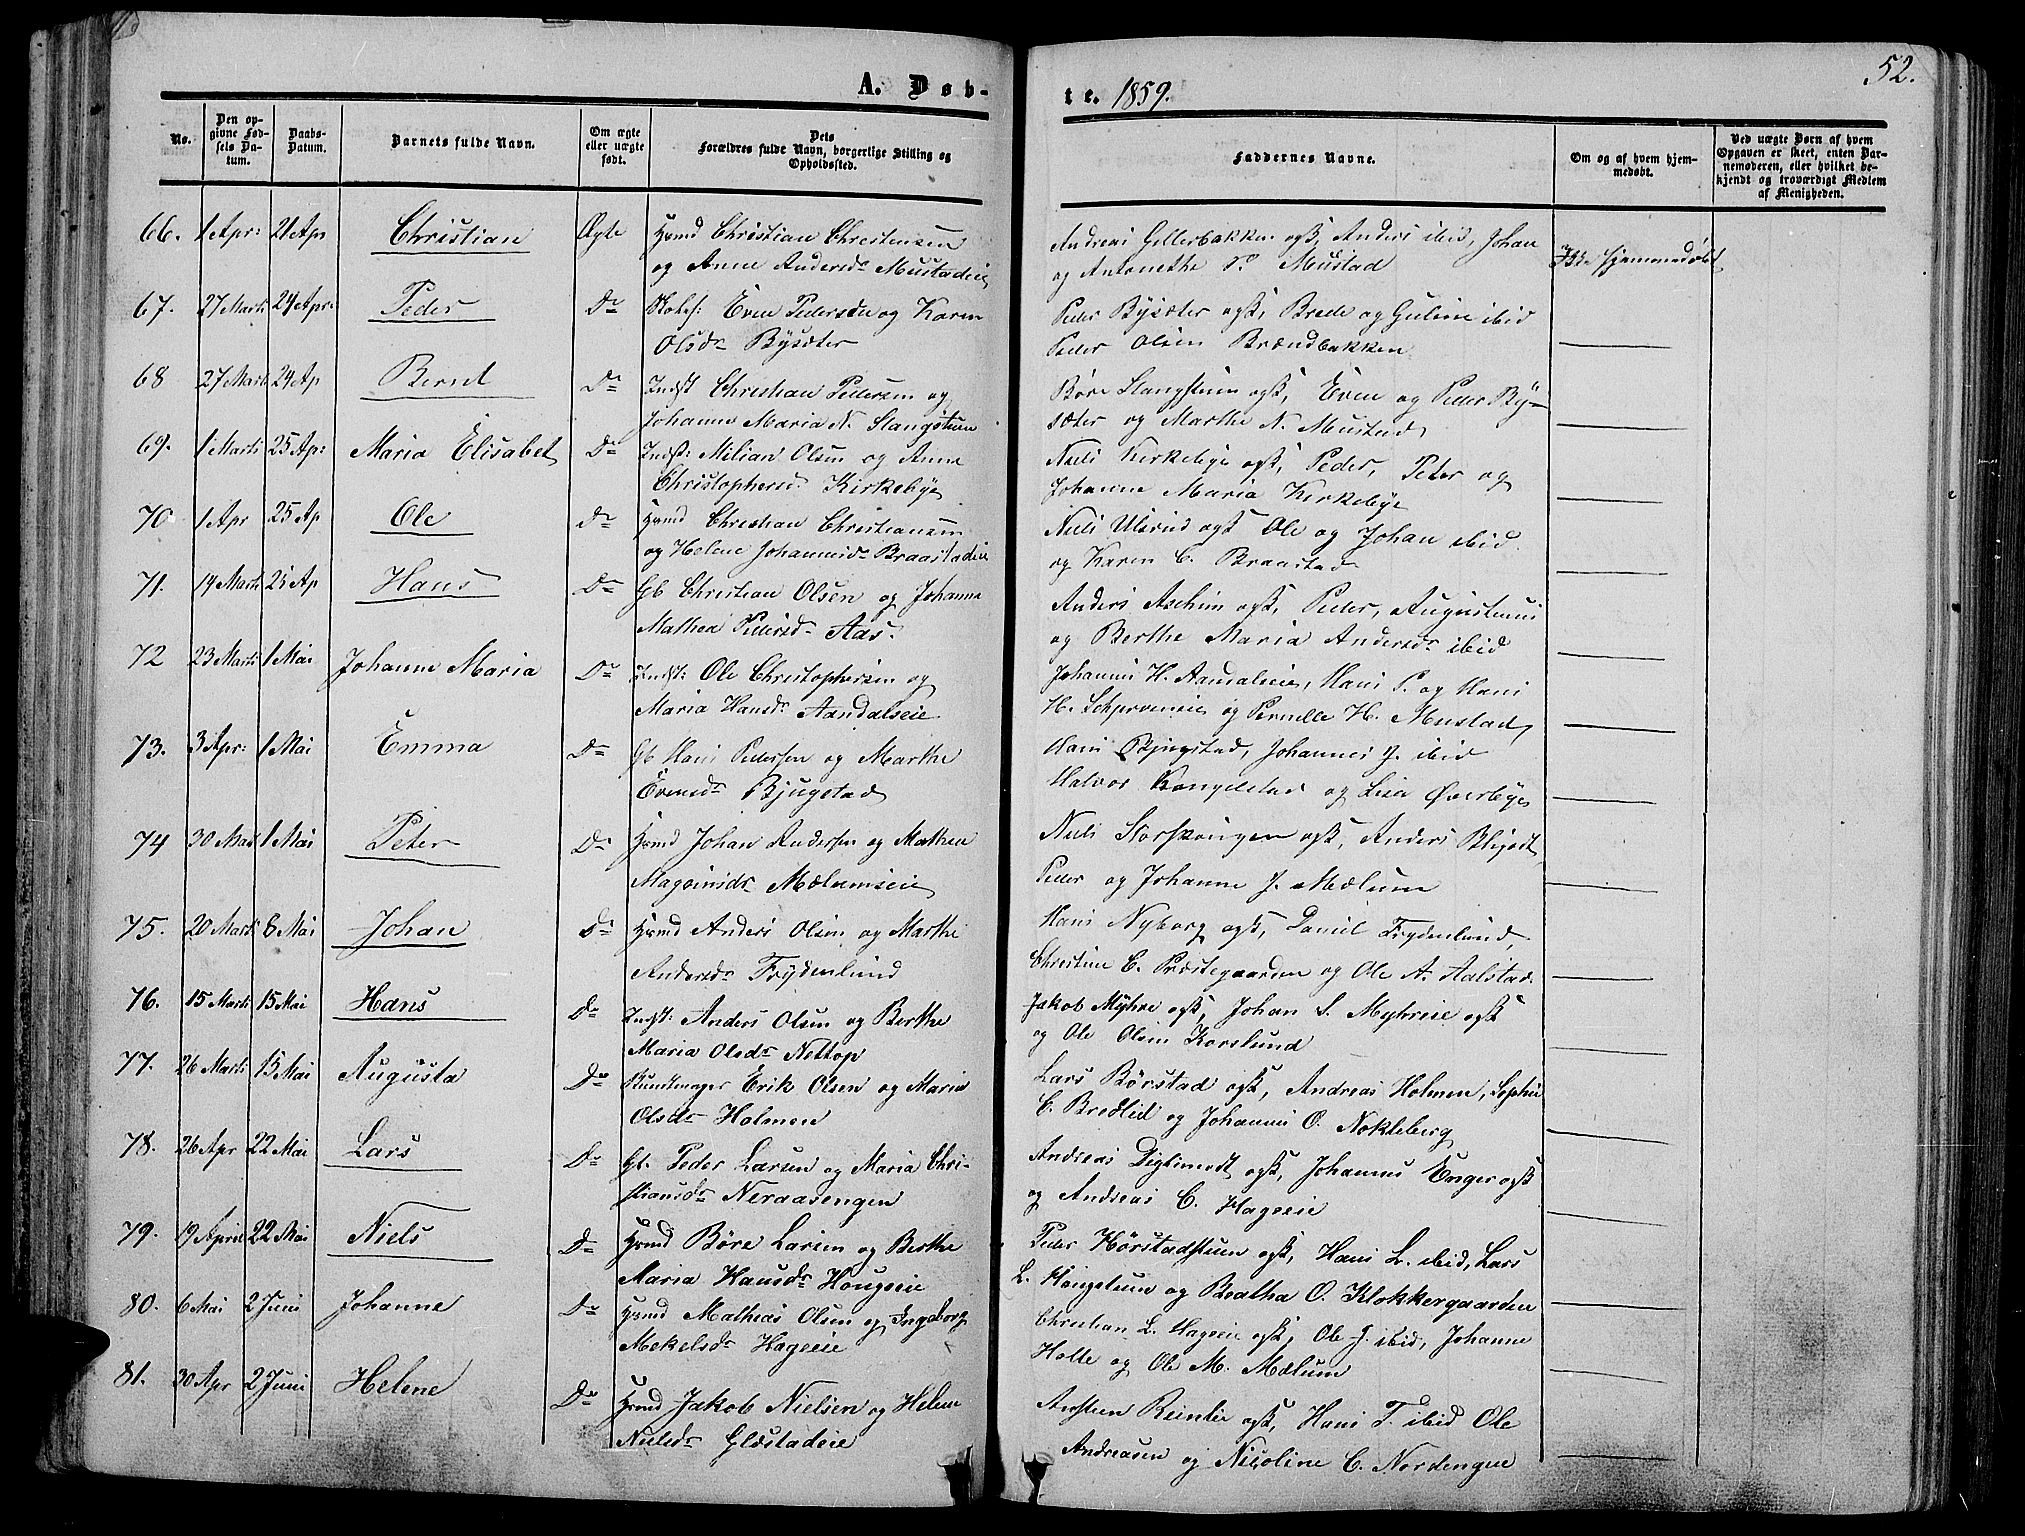 52.
A. Døb-
te. 1859.
No.
Den op-
givne Fød-
sels Da-
tum.
Daabs-
Datum.
Barnets fulde Navn.
Om ægte
eller uægte
født.
Dets
Forældres fulde Navn, borgerlige Stilling og
Opholdssted.
Faddernes Navne.
Om og af hvem hjem-
medøbt.
Ved uægte Børn af hvem
Opgaven er skeet, enten Bar-
nemoderen, eller hvilket be-
kjendt og troværdigt Medlem
af Menigheden.
66. 1 Apr: 21 Apr Christian Ægte Hmd Christian Christensen
og Anne Andersdr Mustadeie
Andreas Gellerbakken ogsk, Anders ibid, Johan
og Antonethe Mustad
Ikke Hjemmedøbt
67. 27 Marts 24 Apr: Peder Do Even Pedersen og Karen
Olsdr Bysæter
Peder Bysæter ogsk, Brede og Guline ibid
Peder Olsen Brændbakken
68 27 Marts 24 Ap Bernt Do Indst Christian Pedersen og
Johanne Maria N. Slangstuen
Böre Slangstuen ogsk, Even og Peder By-
sæter og Marthe N. Mustad
69. 1 Marts 25 Ap: Maria Elisabet Do Indst: Milian Olsen og Anne
Christophersd. Kirkebye
Niels Kirkebye ogsk, Peder, Peter og
Johanne Maria Kirkebye
70 1 Apr 25 Ap Ole Do Hmd Christian Christiansen
og Helene Johannesdr Braastadeie
Niels Ulsrud ogsk Ole og Johan ibid
og Karen C. Braastad
71. 14 Marts 25 Ap Hans Do Gb Christian Olsen og Johanne
Mathea Pedersdr Aas.
Anders Aschim ogsk, Peder, Augustinus
og Berthe Maria Andersdr ibid
72 23 Marts 1 Mai Johanne Maria Do Indst: Ole Christophersen og
Maria Hansdr Aandalseie
Johannes H. Aandalseie, Hans P. og Hans
H. og Pernille H. Mustad
73. 3 Apr: 1 Mai Emma Do Gb Hans Pedersen og Marthe
Evensdr Bjugstad
Hans Bjugstad, Johannes J. ibid
Halvor Kongelstad og Lisa Øverbye
74 30 Marts 1 Mai Peter Do Hmd Johan Andersen og Mathea
Mælumseie
Niels Storskougen ogsk, Anders
Peder og Johanne J. Mælum
75. 20 Marts 8 Mai Johan Do Hmd Anders Olsen og Marthe
Andersdr Frydenlund
Hans Nyborg ogsk, Daniel Frydenlund,
Christine C. Præstegaarden og Ole A. Aalstad.
76. 15 Marts 15 Mai Hans Do Indst: Anders Olsen og Berthe
Maria Olsdr Nettop
Jakob Myhre ogsk, Johan S. Myhreie ogsk
og Ole Olsen Korslund
77. 26 Marts 15 Mai Augusta Do Erik Olsen og Maria
Olsdr Holmen
Lars Börstad ogsk, Andreas Holmen, Sophie
C. Bredlid og Johannes O. Nokleberg
78. 26 Apr 22 Mai Lars Do Gb. Peder Larsen og Maria Chri-
stiansdr Neraasengen
Andreas Diglimodt ogsk, Johannes Enger ogsk
og Andreas C. Hageeie
79. 19 April 22 Mai Niels Do Hmd Böre Larsen og Berthe
Maria Hansdr Hougseie
Peder Hörstadstuen ogsk, Hans L. ibid, Lars
L. Hougstuen og Beatha O. Klokkergaarden
80. 6 Mai 2 Juni Johanne Do Hmd Mathias Olsen og Ingeborg
Mekelsdr Hageeie
Christian L. Hageeie ogsk, Ole J. ibid, Johanne
Holte og Ole M. Mælum
81. 30 Apr 2 Juni Helene Do Hmd Jakob Nielsen og Helene
Nielsdr Glæstadeie
Reinlie ogsk, Hans T. ibid Ole
Andreasen og Nicoline C. Nordengen